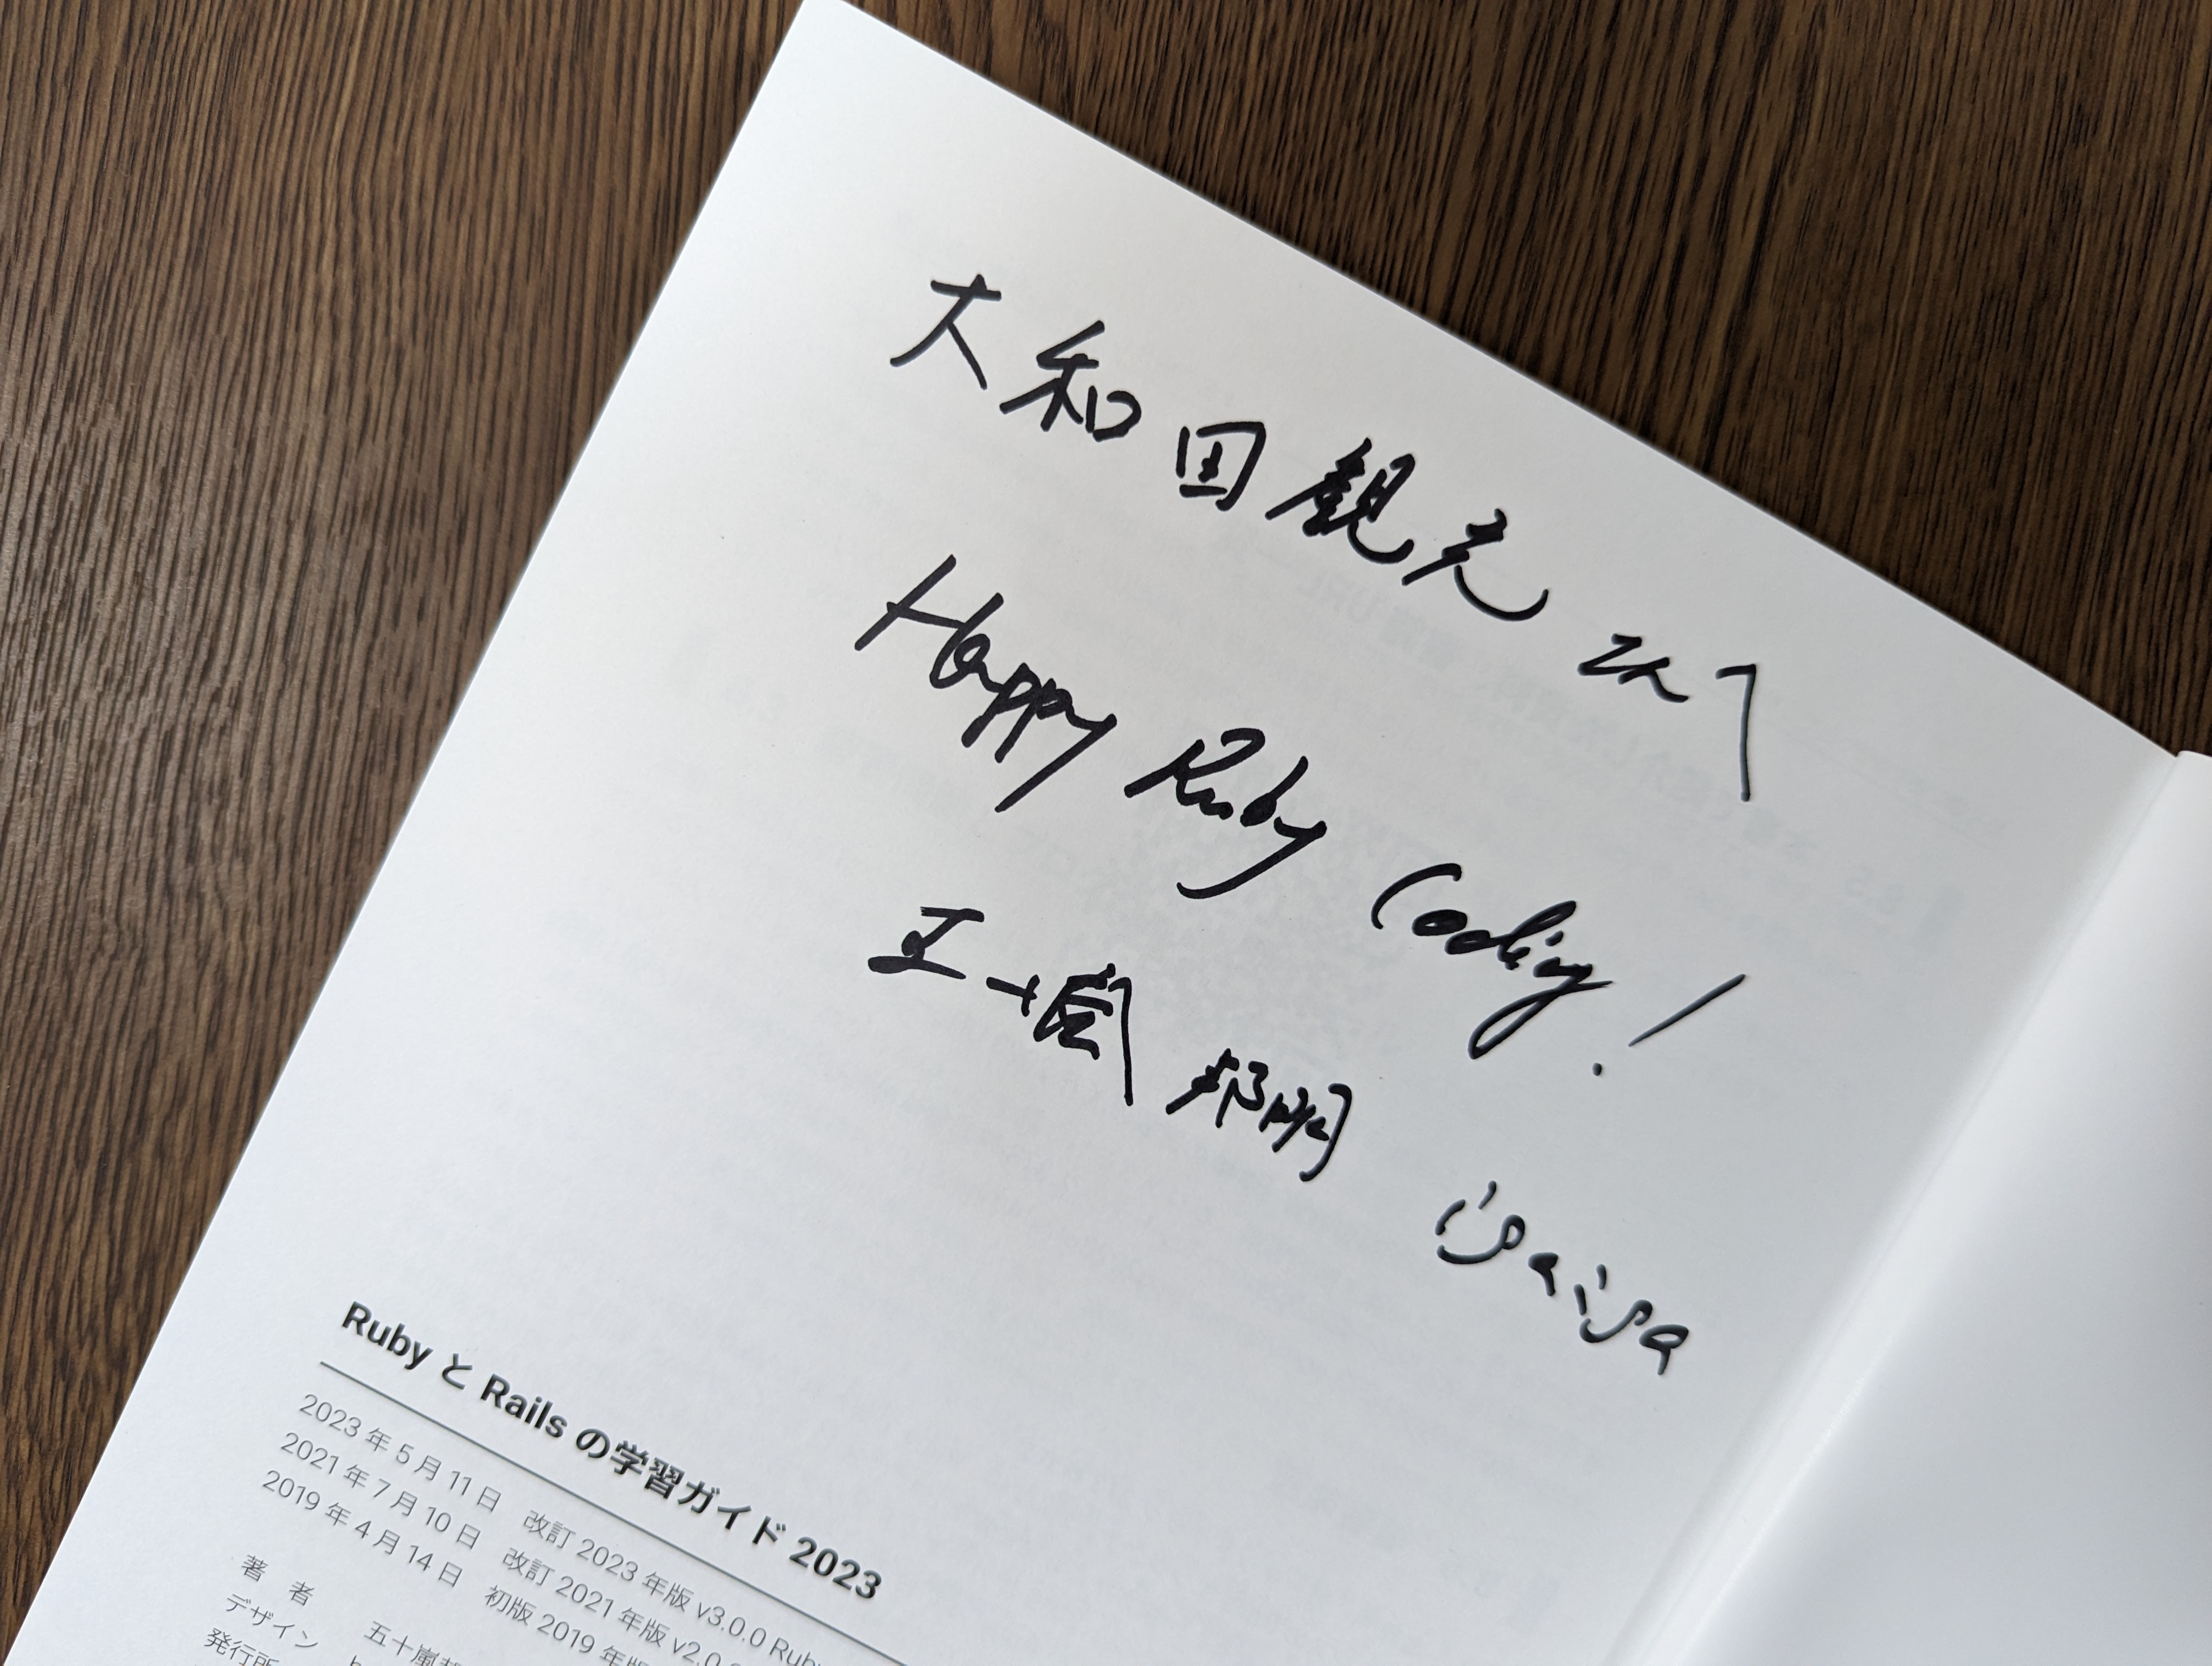 大和田観光さん
Happy Ruby Coding!
五十嵐 邦明 igaiga
Ruby と Rails の学習ガイド 2023
2023 年 5 月 11 日 改訂 2023 年版 v3.0.0 Ruby
2021 年 7 月 10 日 改訂 2021 年版 v2.0
2019 年 4 月 14 日 初版 2019 年版
著 者 五十嵐邦
デザイン
発行所